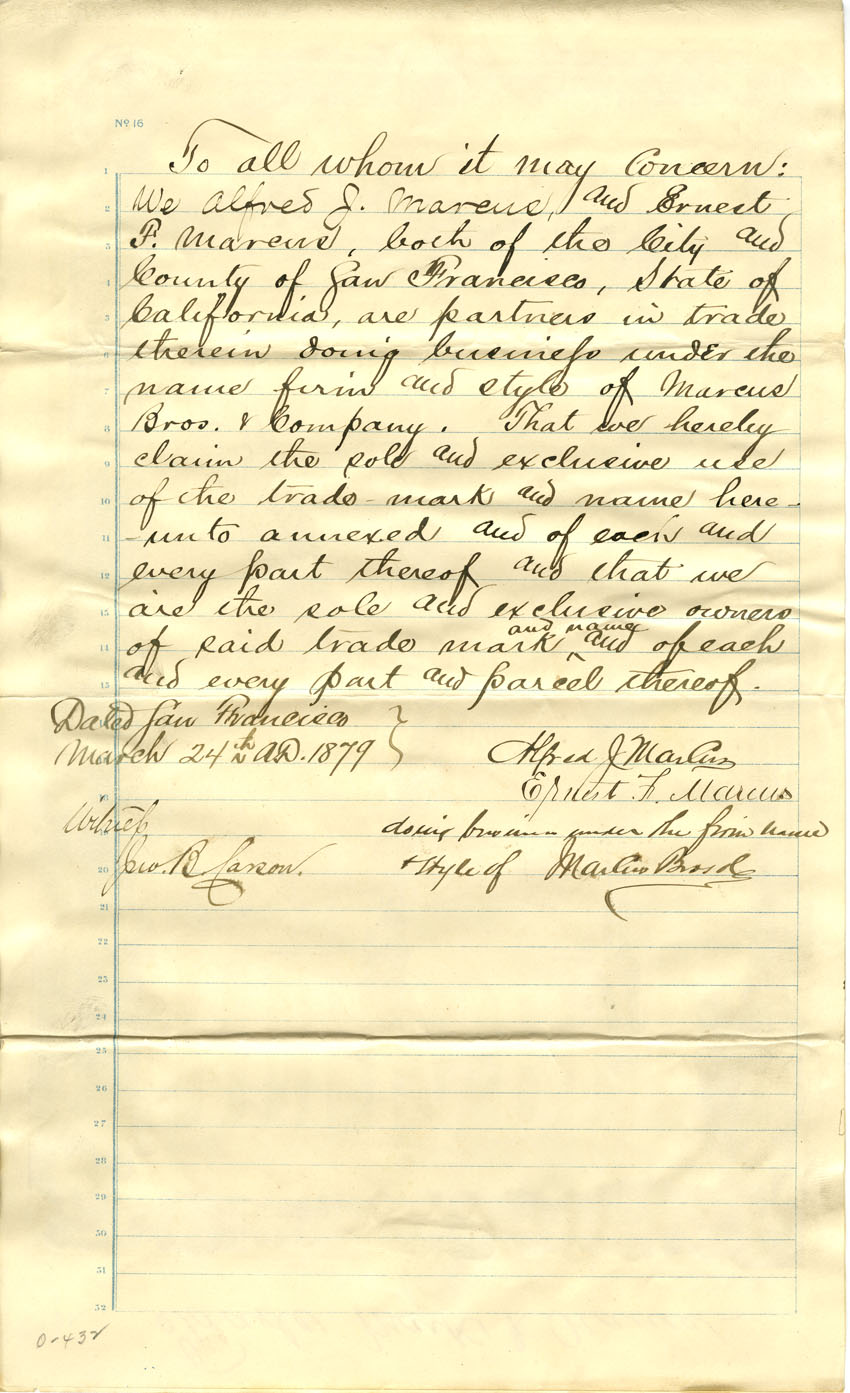 Nº 16
To all whom it may Concern:
We Alfred J. Marcus, and Ernest
F. Marcus, both of the City and
County of San Francisco, State of
California, are partners in trade
therein doing business under the
name firm and style of Marcus
Bros. & Company. That we hereby
claim the sole and exclusive use
of the trade-mark and name here-
-unto annexed and of each and
every part thereof and that we
are the sole and exclusive owners
and name
of said trade mark ^ and of each
and every part and parcel thereof.
Dated San Francisco
March 24th A.D. 1879
Alfred J Marcus
Ernest F. Marcus
Witness
doing business under the firm name
Geo. B Carson.
+ style of Marcus Bros &
1
2
3
4
5
6
7
8
9
10
11
12
13
14
15
18
20
21
22
23
24
25
26
27
28
29
30
31
32
0-432